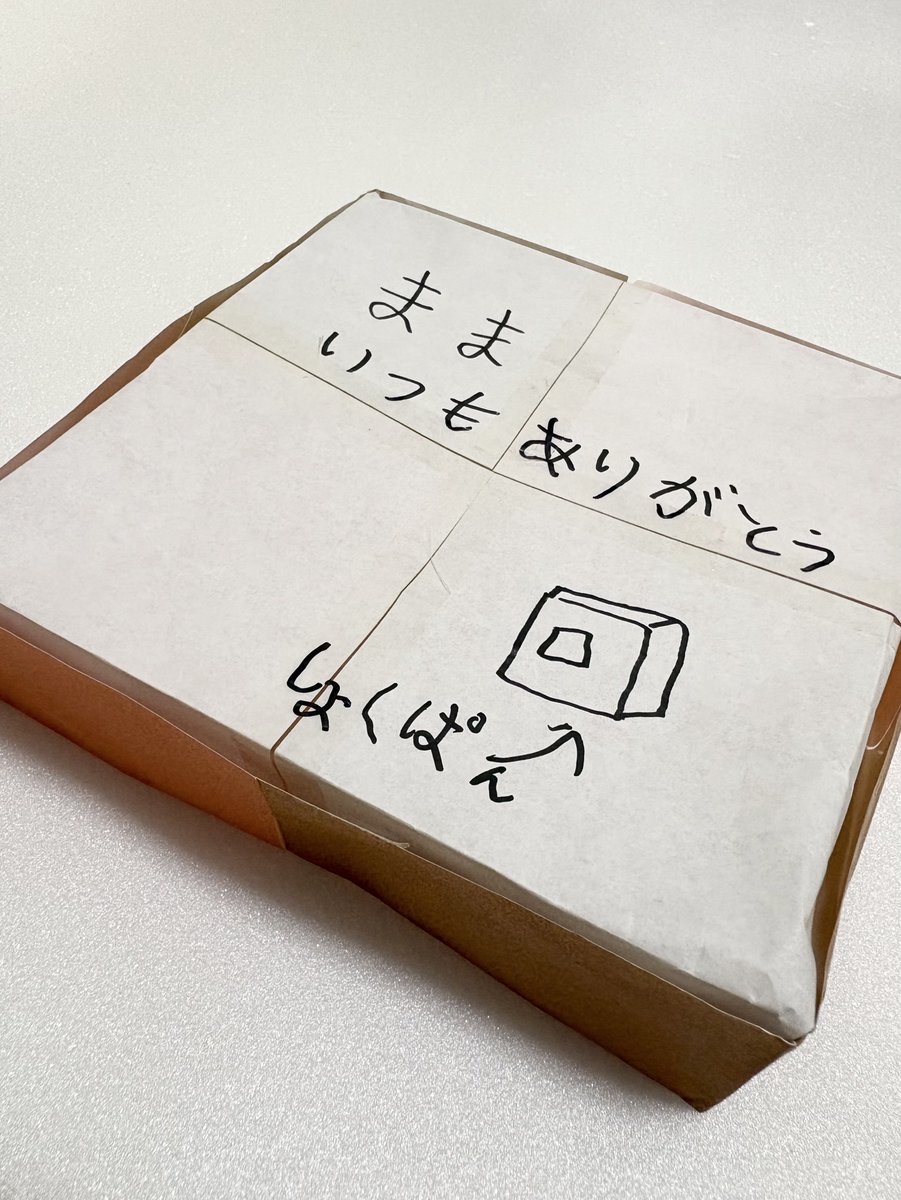 まま
いつもありがとう
しょくぱん